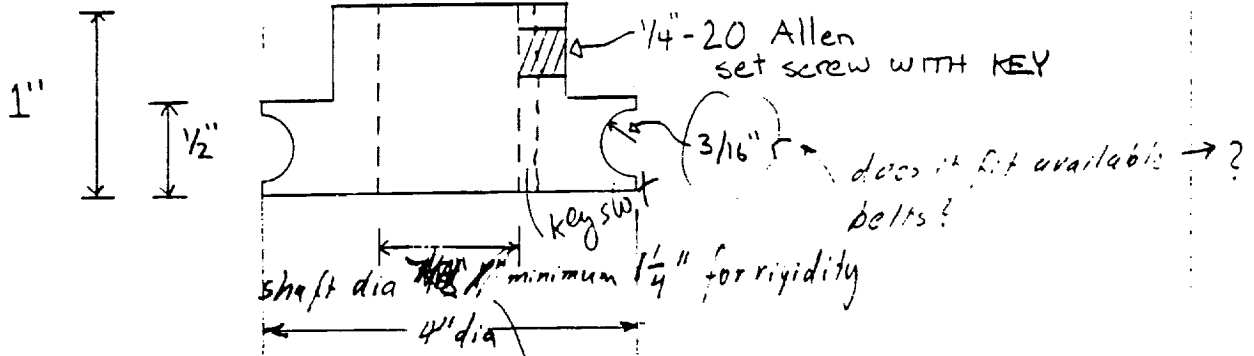 1"
1/2"
1/4"-20 Allen
set screw WITH KEY
3/16" r
does it fit available → ?
belts?
key slot
shaft dia 1" minimum 1 1/4" for rigidity
4" dia